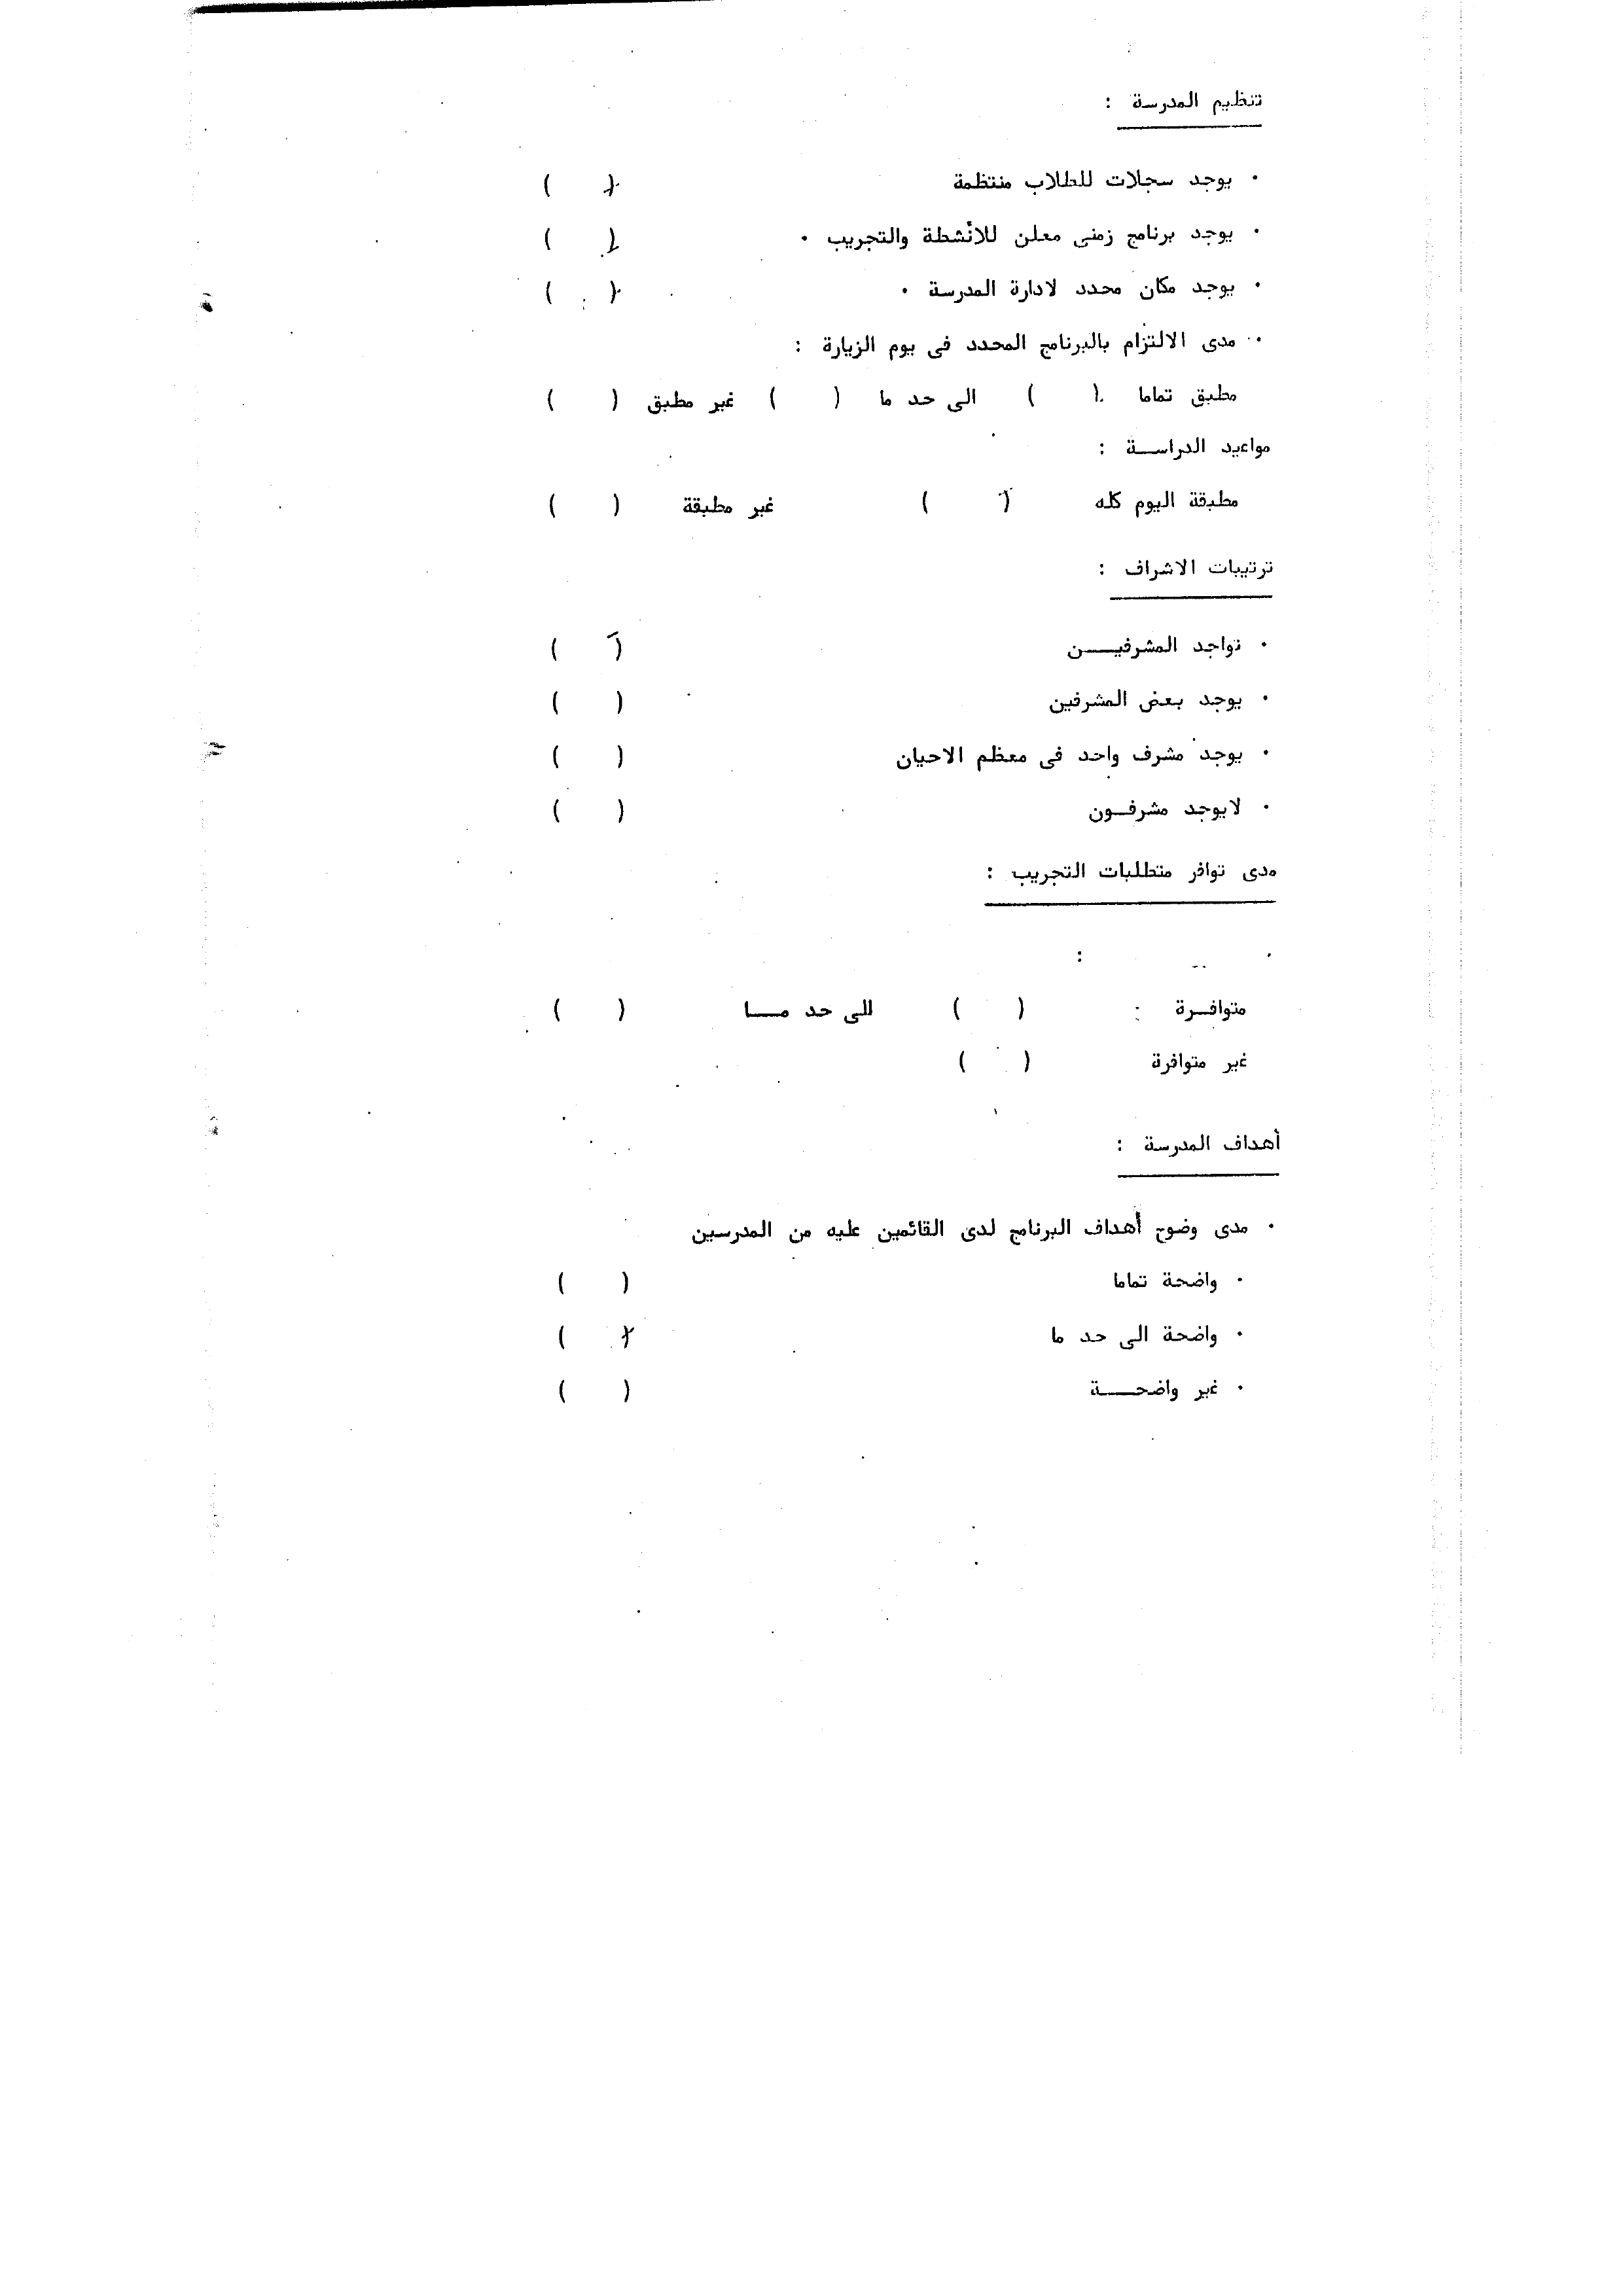 تنظيم المدرسة :
٠ يوجد سجلات للطلاب منتظمة ( )
٠ يوجد برنامج زمنى معلن للأنشطة والتجريب ٠ ( )
٠ يوجد مكان محدد لادارة المدرسة ٠ ( )
٠ مدى الالتزام بالبرنامج المحدد فى يوم الزيارة :
مطبق تماما ( ) الى حد ما ( ) غير مطبق ( )
مواعيد الدراســة :
مطبقة اليوم كله ( ) غير مطبقة ( )
ترتيبات الاشراف :
٠ تواجد المشرفيـــن ( )
٠ يوجد بعض المشرفين ( )
٠ يوجد مشرف واحد فى معظم الاحيان ( )
٠ لايوجد مشرفــون ( )
مدى توافر متطلبات التجريب :
٠ :
متوافــرة : ( ) للى حد مــــا ( )
غير متوافرة ( )
أهداف المدرسة :
٠ مدى وضوح أهداف البرنامج لدى القائمين عليه من المدرسين
٠ واضحة تماما ( )
٠ واضحة الى حد ما ( )
٠ غير واضحــــة ( )